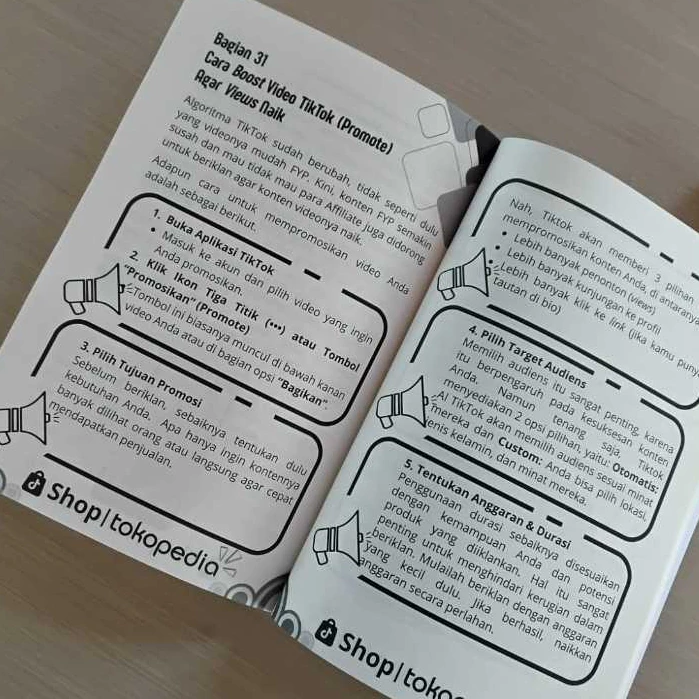 Bagian 31
Cara Boost Video TikTok (Promote)
Agar Views Naik
Algoritma TikTok sudah berubah, tidak seperti dulu
yang videonya mudah FYP. Kini, konten FYP semakin
susah dan mau tidak mau para Affiliate juga didorong
untuk beriklan agar konten videonya naik.
Adapun cara untuk mempromosikan video Anda
adalah sebagai berikut.
1. Buka Aplikasi TikTok
• Masuk ke akun dan pilih video yang ingin
Anda promosikan.
2. Klik Ikon Tiga Titik (•••) atau Tombol
"Promosikan" (Promote)
Tombol ini biasanya muncul di bawah kanan
video Anda atau di bagian opsi "Bagikan".
3. Pilih Tujuan Promosi
Sebelum beriklan, sebaiknya tentukan dulu
kebutuhan Anda. Apa hanya ingin kontennya
banyak dilihat orang atau langsung agar cepat
mendapatkan penjualan.
Shop | tokopedia
Nah, Tiktok akan memberi 3 pilihan
mempromosikan konten Anda, di antaranya
• Lebih banyak penonton (views)
• Lebih banyak kunjungan ke profil
• Lebih banyak klik ke link (jika kamu puny
tautan di bio)
4. Pilih Target Audiens
Memilih audiens itu sangat penting, karena
itu berpengaruh pada kesuksesan konten
Anda. Namun tenang saja, Tiktok
menyediakan 2 opsi pilihan, yaitu: Otomatis:
AI TikTok akan memilih audiens sesuai minat
mereka dan Custom: Anda bisa pilih lokasi,
jenis kelamin, dan minat mereka.
5. Tentukan Anggaran & Durasi
Penggunaan durasi sebaiknya disesuaikan
dengan kemampuan Anda dan potensi
produk yang diiklankan. Hal itu sangat
penting untuk menghindari kerugian dalam
beriklan. Mulailah beriklan dengan anggaran
yang kecil dulu. Jika berhasil, naikkan
anggaran secara perlahan.
Shop | tokop